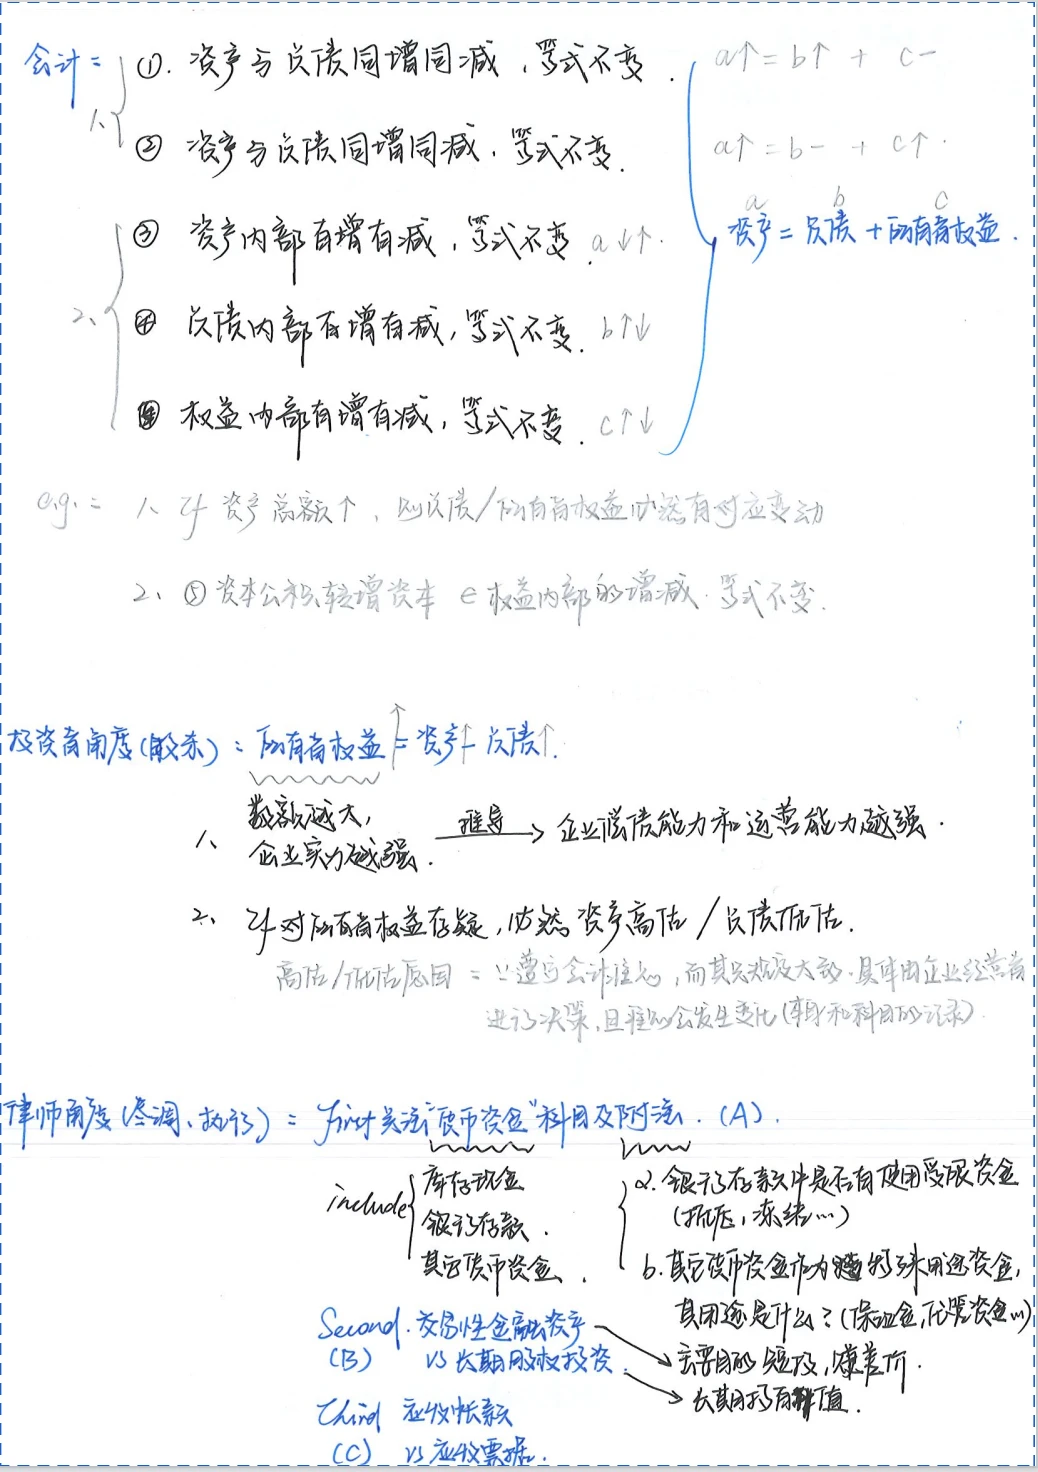 会计：
1、
①. 资产与负债同增同减，等式不变.
a↑ = b↑ + c−
② 资产与负债同增同减，等式不变.
a↑ = b− + c↑.
a b c
资产 = 负债 + 所有者权益.
2、
③ 资产内部有增有减，等式不变. a↓↑.
④ 负债内部有增有减，等式不变. b↑↓
⑤ 权益内部有增有减，等式不变. c↑↓
e.g.: 1、if 资产总额↑，则负债/所有者权益必然有对应变动
2、⑤资本公积转增资本 ∈ 权益内部的增减. 等式不变.
投资者角度(股东)：所有者权益↑ = 资产↑ − 负债↑.
1、
数额越大，
企业实力越强.
推导
企业偿债能力和运营能力越强.
2、if对所有者权益存疑，必然资产高估/负债低估.
高估/低估原因：∵遵守会计准则，而其宽泛度大，具体由企业经营者
进行决策，且准则会发生变化(和科目的记录).
律师角度(尽调、执行)：first关注"货币资金"科目及附注. (A).
include
库存现金
银行存款.
其它货币资金.
a. 银行存款中是否有使用受限资金
(抵压，冻结…)
b. 其它货币资金作为特殊用途资金，
其用途是什么？(保证金，托管资金…)
Second. 交易性金融资产
(B) vs 长期股权投资.
主要目的短及，赚差价.
长期持有增值.
Third 应收帐款
(C) vs 应收票据.